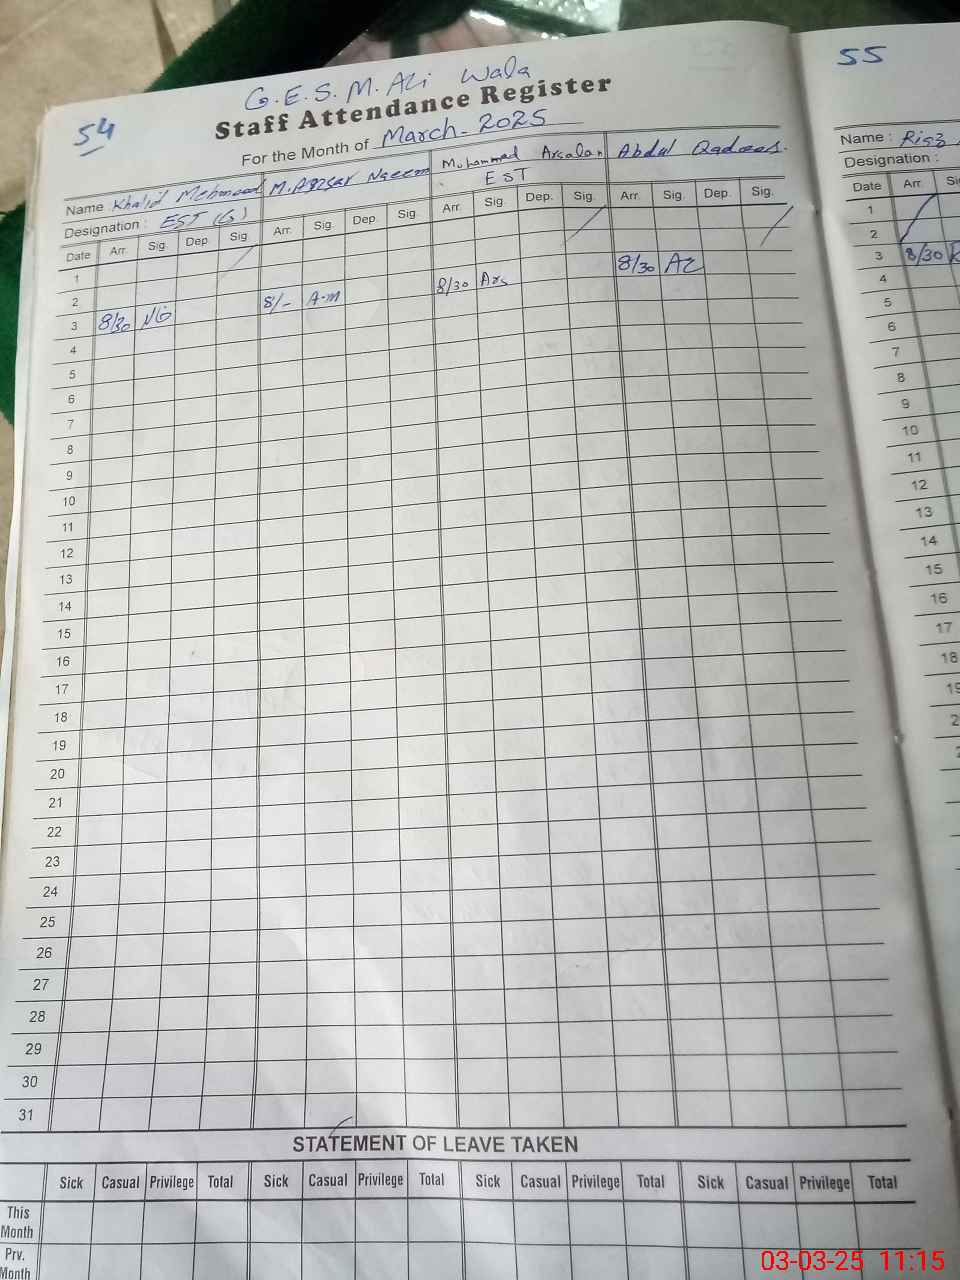 54
G.E.S. M. Ali Wala
Staff Attendance Register
For the Month of March-2025
Name Khalid Mehmood M. Naeem Muhammad Arsalan Abdul Qadoos.
Designation : EST (G) EST
Date Arr. Sig. Dep. Sig. Arr. Sig. Dep. Sig. Arr. Sig. Dep. Sig. Arr. Sig. Dep. Sig.
1
2
3 8/30 8/- A-m 8/30 Ars 8/30
4
5
6
7
8
9
10
11
12
13
14
15
16
17
18
19
20
21
22
23
24
25
26
27
28
29
30
31
STATEMENT OF LEAVE TAKEN
Sick Casual Privilege Total Sick Casual Privilege Total Sick Casual Privilege Total Sick Casual Privilege Total
This Month
Prv. Month
55
Name : Riaz
Designation :
Date Arr.
1
2
3 8/30
4
5
6
7
8
9
10
11
12
13
14
15
16
17
18
03-03-25 11:15